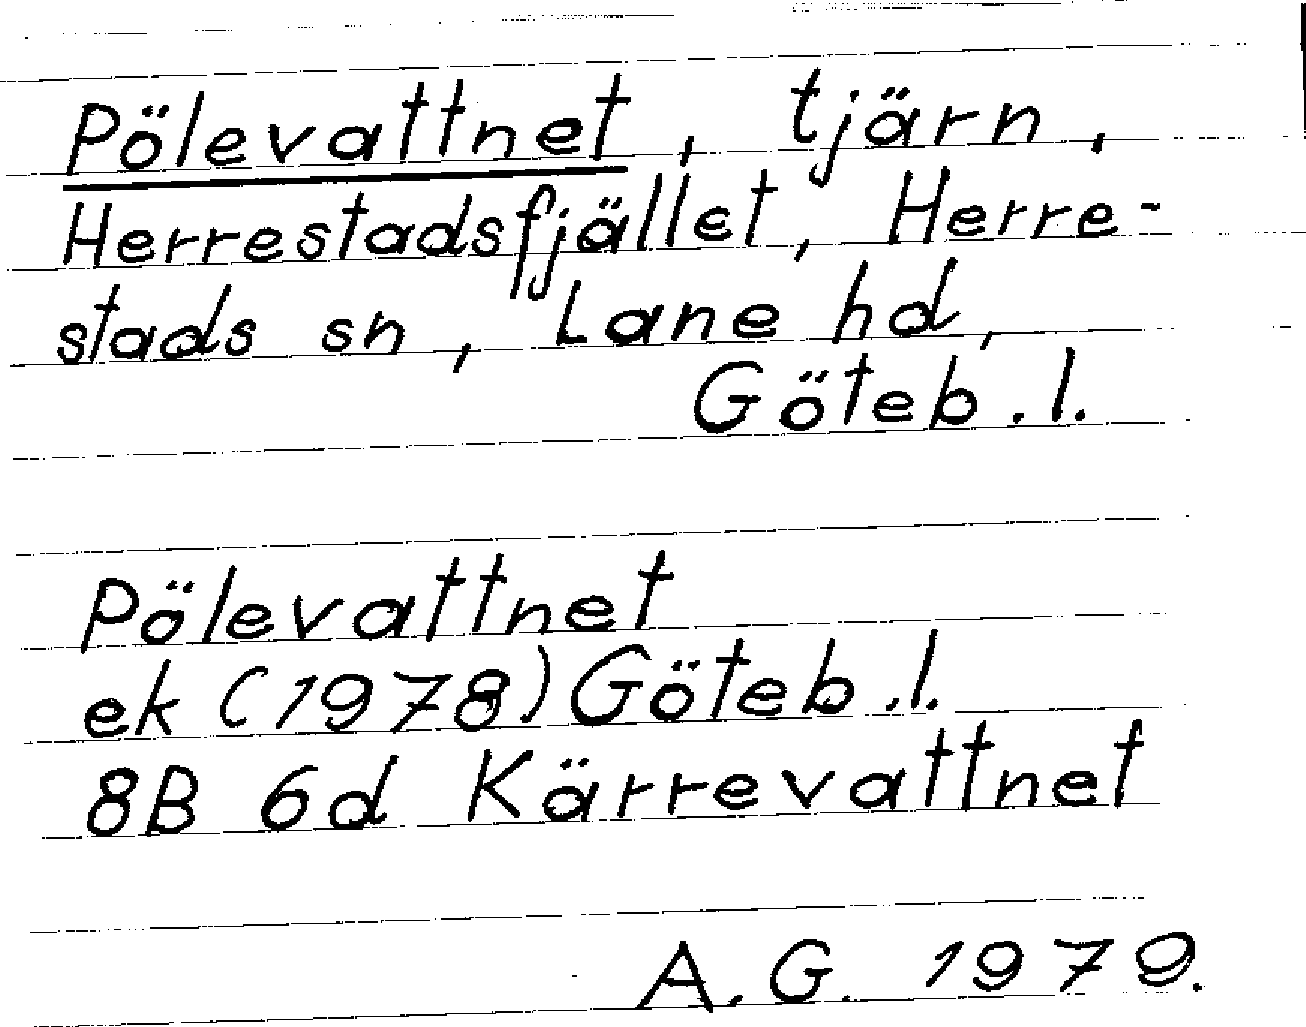 Pölevattnet, tjärn,
Herrestadsfjället, Herre-
stads sn, Lane hd,
Göteb.l.
Pölevattnet
ek (1978) Göteb.l.
8B 6d Kärrevattnet
A.G. 1979.